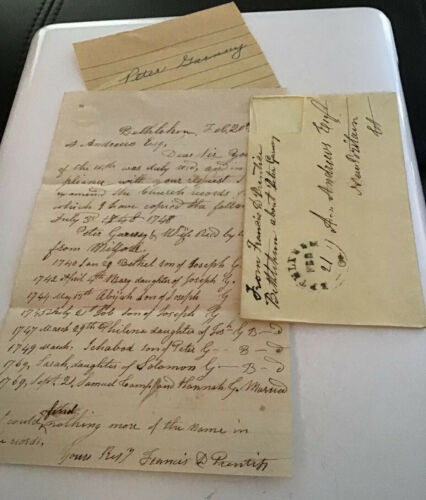 Peter Garnsey
Bethlehem, Feb, 20th
A Andrews Esq,
Dear Sir
of the was duly recd, and in
with your request I
examined the Church records
which I have copied the
July 5th 1748
Peter Garnsey & Wife Recd by
from Milford
1740 Jan 2 Bethel son of Joseph G
1742 April 4th Mary daughter of Joseph G.
1744 May 13th Abijah son of Joseph G
July 21 Job son of Joseph G
1747 March 29th daughter of Jos. G B—d
1749 March. Ichabod son of Peter G— B—d
1769, Sarah, daughter of Solomon G— B—d
1769, Sept. 21, Samuel Camp and Hannah G. Married
could find nothing more of the name in
Yours Resp Francis D Prentiss
From Francis D Prentice
Bethlehem about Peter Garnsey
FEB
21
Andrews Esq
New Britain
Ct